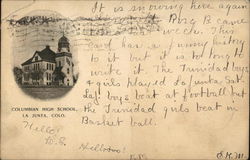 It is snowing here again
Rosa B came
week. This
Card has a funny history
to it but it is to long to
write it. The Trinidad boys
& girls played La Junta Sat.
La J boys beat at football but
the Trinidad girls beat in
Basket ball.
COLUMBIAN HIGH SCHOOL,
LA JUNTA, COLO.
Hello!